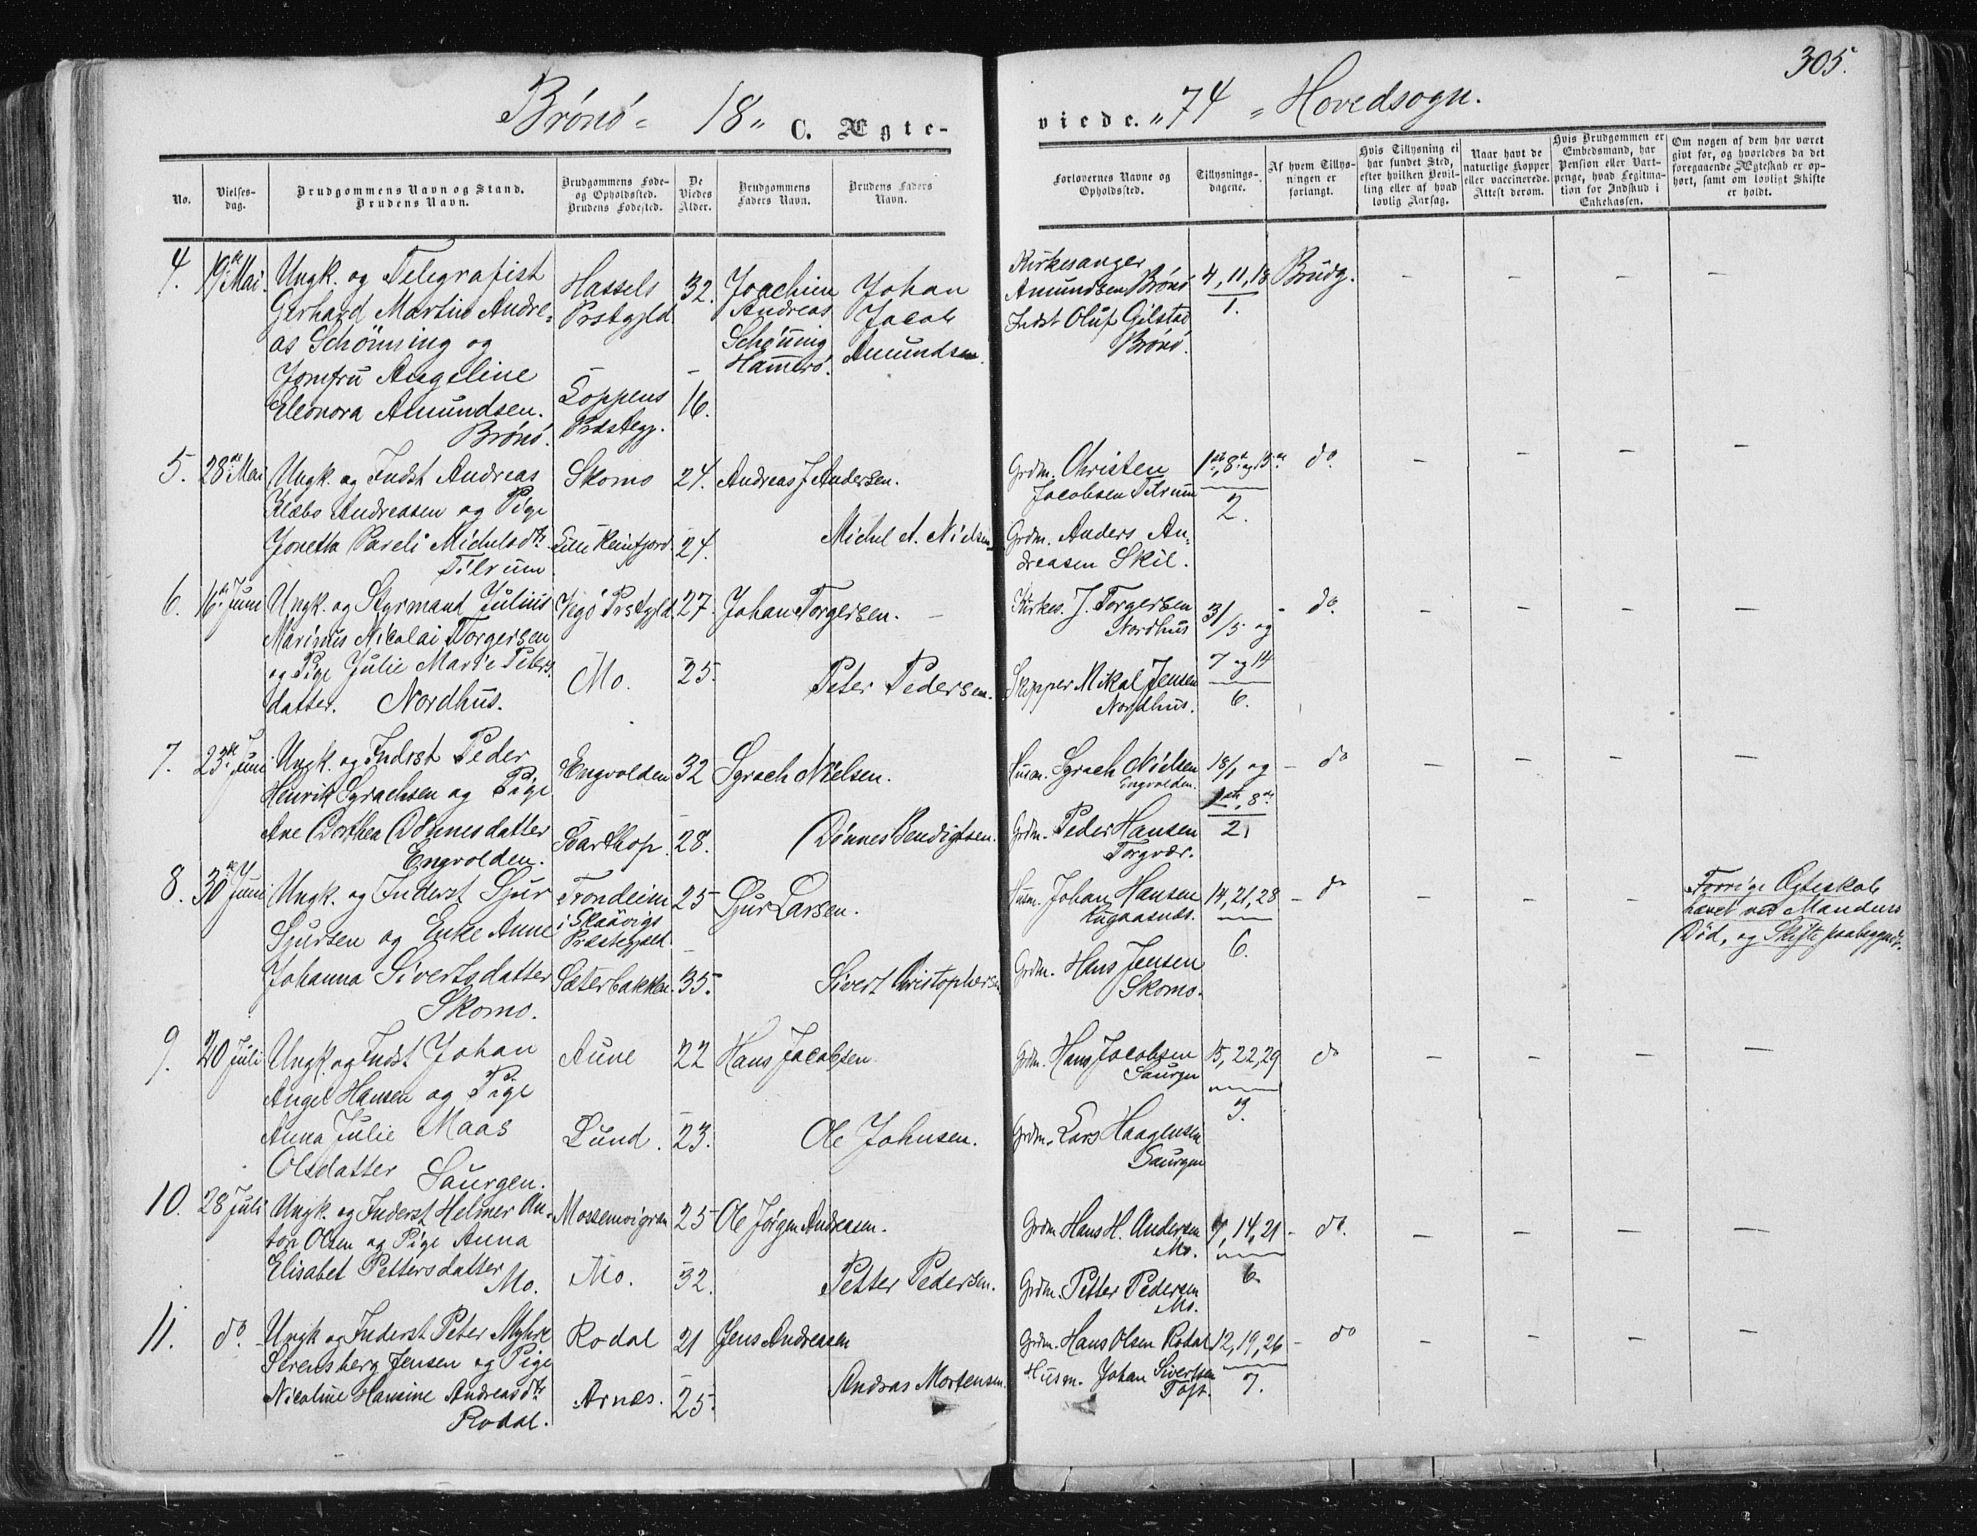 305.
Brønø - 18 " C. Ægte-
viede. " 74 " Hovedsogn.
No.
Vielses-
dag.
Brudgommens Navn og Stand.
Brudens Navn.
Brudgommens Føde-
og Opholdssted.
Brudens Fødested.
De
Viedes
Alder.
Brudgommens
Faders Navn.
Brudens Faders
Navn.
Forlovernes Navne og
Opholdssted.
Tillysnings-
dagene.
Af hvem Tillys-
ningen er
forlangt.
Hvis Tillysning ei
har fundet Sted,
efter hvilken Bevil-
ling eller af hvad
lovlig Aarsag.
Naar havt de
naturlige Kopper
eller vaccinerede.
Attest derom.
Hvis Brudgommen er
Embedsmand, har
Pension eller Vart-
penge, hvad Legitima-
tion for Indskud i
Enkekassen.
Om nogen af dem har været
givt før, og hvorledes da det
foregaaende Ægteskab er op-
hørt, samt om lovligt Skifte
er holdt.
4. 19de Mai.
Ungk. og Telegrafist
Gerhard Martin Andre-
as Schönning og
Jomfru Angeline
Eleonora Amundsen.
Brønø.
Hassels
Prstgjld
Loppens
Præstegj.
32.
16.
Joachim
Andreas
Schønning
Hammerø.
Johan
Jacob
Amundsen.
Kirkesanger
Amundsen Brønø
Indst Oluf Gilstad
Brønø.
4, 11, 18
1.
Brudg.
5. 28de Mai
Ungk. og Indst Andreas
Klæbo Andreasen og Pige
Jonetta Pareli Michelsdtr.
Tilrum
Skomo
Lille Reinfjord.
24.
24.
Andreas J. Andersen.
Michel A. Nielsen
Grdm. Christen
Jacobsen Tilrum
Grdm. Anders An-
dreasen Skil.
1ste, 8de og 15de
2.
do.
6. 16de Juni
Ungk. og Styrmand Julius
Marinus Nicolai Torgersen
og Pige Julie Marie Peters-
datter. Nordhus.
Vegø Prstgjld
Mo.
27.
25.
Johan Torgersen.
Peter Pedersen.
Kirkes. J. Torgersen
Nordhus
Skipper Mikal Jensen
Nordhus.
31/5 og
7 og 14
6.
do.
7. 23de Juni
Ungk. og Indrst Peder
Henrik Syrachsen og Pige
Ane Dorthea Dønnesdatter
Engvolden.
Engvolden
Barthop.
32
28.
Syrach Nielsen.
Dønnes Bendigtsen.
Husm. Syrach Nielsen
Engvolden.
Grdm. Peder Hansen
Torgvær.
18/1 og
1ste, 8de
2
do
8. 30te Juni
Ungk. og Inderst Sjur
Sjursen og Enke Anne
Johanna Sivertsdatter
Skomo.
Trondeim
i Skaavigs
Præstegjeld
Sæterbakken.
25
35.
Sjur Larsen.
Sivert Christophersen
Husm. Johan Hansen
Grdm. Hans Jensen
Skomo.
14, 21, 28
6.
do
Forrige Ægteskab
hævet ved Mandens
Død, og Skifte paabegyndt.
9. 20 Juli
Ungk. og Indst Johan
Angel Hansen og Pige
Anna Julie Maas
Olsdatter Saurgen.
Aune
Lund.
22
23.
Hans Jacobsen.
Ole Johnsen.
Grdm. Hans Jacobsen
Saurgen
Grdm. Lars Haagensen
Saurgen
15, 22, 29
3.
do
10. 28 Juli
Ungk. og Inderst Helmer An-
ton Olsen og Pige Anna
Elisabet Pettersdatter
Mo.
Mo.
25
32.
Ole Jørgen Andreasen.
Petter Pedersen.
Grdm. Hans H. Andersen
Mo.
Grdm. Petter Pedersen
Mo.
7, 14, 21
6
do.
11. do.
Ungk og Inderst Peter Myhre
Serensberg Jensen og Pige
Nicoline Hansine Andreasdtr
Rodal.
Rodal
Arnæs.
21
25.
Jens Andreasen
Andras Mortensen.
Grdm. Hans Olsen Rodal
Husm. Johan Sivertsen
Toft.
12, 19, 26
7.
do